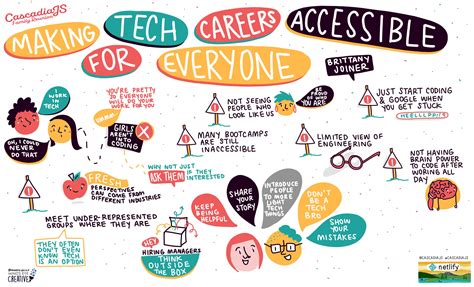 CascadiaJS
Family Reunion
MAKING
TECH
CAREERS
ACCESSIBLE
FOR
EVERYONE
BRITTANY
JOINER
I
WORK IN
TECH
OH, I COULD
NEVER
DO THAT
YOU'RE PRETTY
SO EVERYONE
WILL DO YOUR
WORK FOR YOU
GIRLS
AREN'T INTO
CODING
NOT SEEING
PEOPLE WHO
LOOK LIKE US
BE
PROUD OF
WHO YOU
ARE
JUST START CODING
& GOOGLE WHEN
YOU GET STUCK
MANY BOOTCAMPS
ARE STILL
INACCESSIBLE
LIMITED VIEW OF
ENGINEERING
NOT HAVING
BRAIN POWER
TO CODE AFTER
WORKING ALL
DAY
FRESH
PERSPECTIVES
CAN COME FROM
DIFFERENT INDUSTRIES
WHY NOT JUST
ASK THEM IF THEY'RE
INTERESTED
MEET UNDER-REPRESENTED
GROUPS WHERE THEY ARE
THEY OFTEN
DON'T EVEN
KNOW TECH
IS AN OPTION
HEY
HIRING MANAGERS
THINK
OUTSIDE
THE BOX
KEEP
BEING
HELPFUL
SHARE
YOUR
STORY
INTRODUCE
PEOPLE
TO MORE
TECH
THINGS
DON'T
BE A
TECH
BRO
SHOW
YOUR
MISTAKES
MIND'S EYE
CREATIVE
#CASCADIAJS @CASCADIAJS
netlify